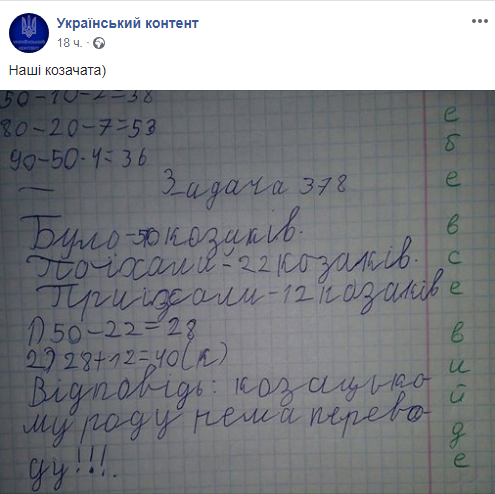 Український контент
18 ч.
Наші козачата)
50-10-2=38
80-20-7=53
90-50-4=36
Задача 378
Було-50 козаків.
Поїхали-22 козаків.
Приїхали-12 козаків
1) 50-22=28
2) 28+12=40(к)
Відповідь: козацько
му роду нема перево-
ду!!!.
е
б
е
в
с
е
в
и
й
д
е